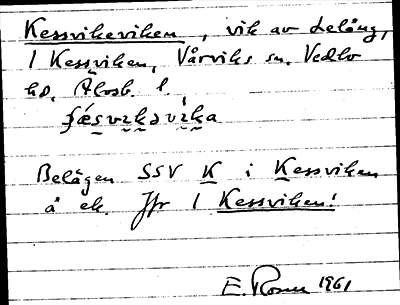 Kessvikeviken, vik av Lelång,
1 Kessviken, Vårviks sn, Vedbo
hd, Älvsb. l.
Belägen SSV K i Kessviken
å ek. Jfr 1 Kessviken!
E. Rosen 1961